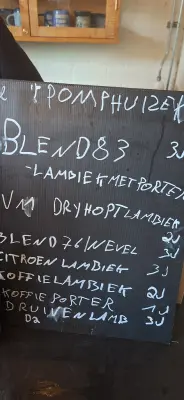 'T POMPHUIZEK
BLEND83 3J
-LAMBIEK MET PORTER
VM DRYHOPT LAMBIEK
2J
BLEND76/NEVEL 3J
CITROEN LAMBIEK 3J
KOFFIELAMBIEK 2J
KOFFIE PORTER 1J
DRUIVEN LAMB 3J